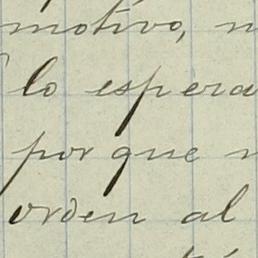 motivo, n
lo espera
por que n
orden al